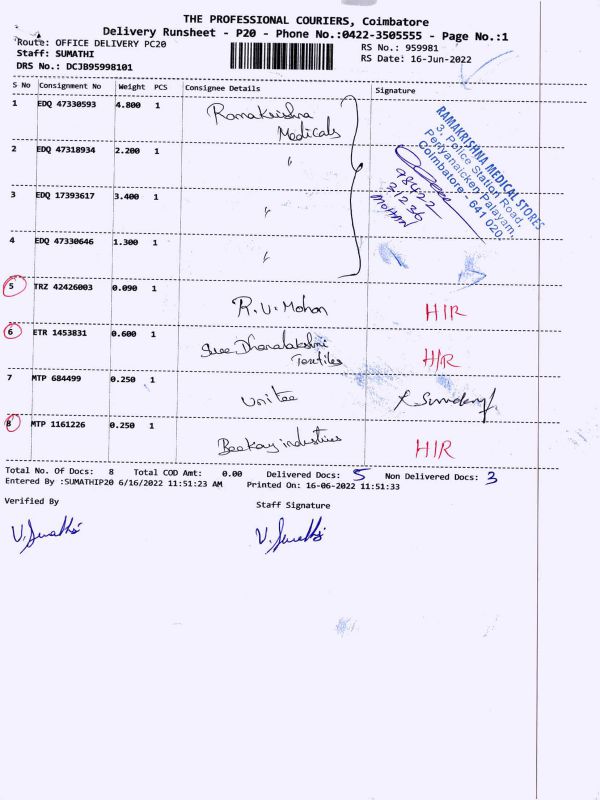 THE PROFESSIONAL COURIERS, Coimbatore
Delivery Runsheet - P20 - Phone No.:0422-3505555 - Page No.:1
Route: OFFICE DELIVERY PC20
Staff: SUMATHI
DRS No.: DCJB95998101
RS No.: 959981
RS Date: 16-Jun-2022
S No Consignment No Weight PCS Consignee Details Signature
1 EDQ 47330593 4.800 1 Ramakrishna Medicals
2 EDQ 47318934 2.200 1 "
3 EDQ 17393617 3.400 1 "
4 EDQ 47330646 1.300 1 "
RAMAKRISHNA MEDICAL STORES
3, Police Station Road,
Periyanaicken Palayam,
Coimbatore - 641 020.
98422
31236
MOHAN
5 TRZ 42426003 0.090 1 R.V. Mohan H/R
6 ETR 1453831 0.600 1 Sree Dhanalakshmi Textiles H/R
7 MTP 684499 0.250 1 Unitee
8 MTP 1161226 0.250 1 Beekay industries H/R
Total No. Of Docs: 8 Total COD Amt: 0.00 Delivered Docs: 5 Non Delivered Docs: 3
Entered By :SUMATHIP20 6/16/2022 11:51:23 AM Printed On: 16-06-2022 11:51:33
Verified By Staff Signature
V. Sumathi V. Sumathi